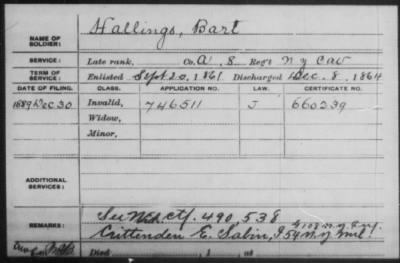 Hallings, Bart
NAME OF SOLDIER:
SERVICE: Late rank, Co. A, 8 Reg't N Y Cav
TERM OF SERVICE: Enlisted Sept. 20, 1861 Discharged Dec. 8, 1864
DATE OF FILING. CLASS. APPLICATION NO. LAW. CERTIFICATE NO.
1889 Dec 30 Invalid, 746511 J 660239
Widow,
Minor,
ADDITIONAL SERVICES:
REMARKS: See Wid. ctf. 490,538
Crittenden E. Sabin, I 54 N.Y. Mil.
G 108 N.Y. Inf.
Died , 1 , at